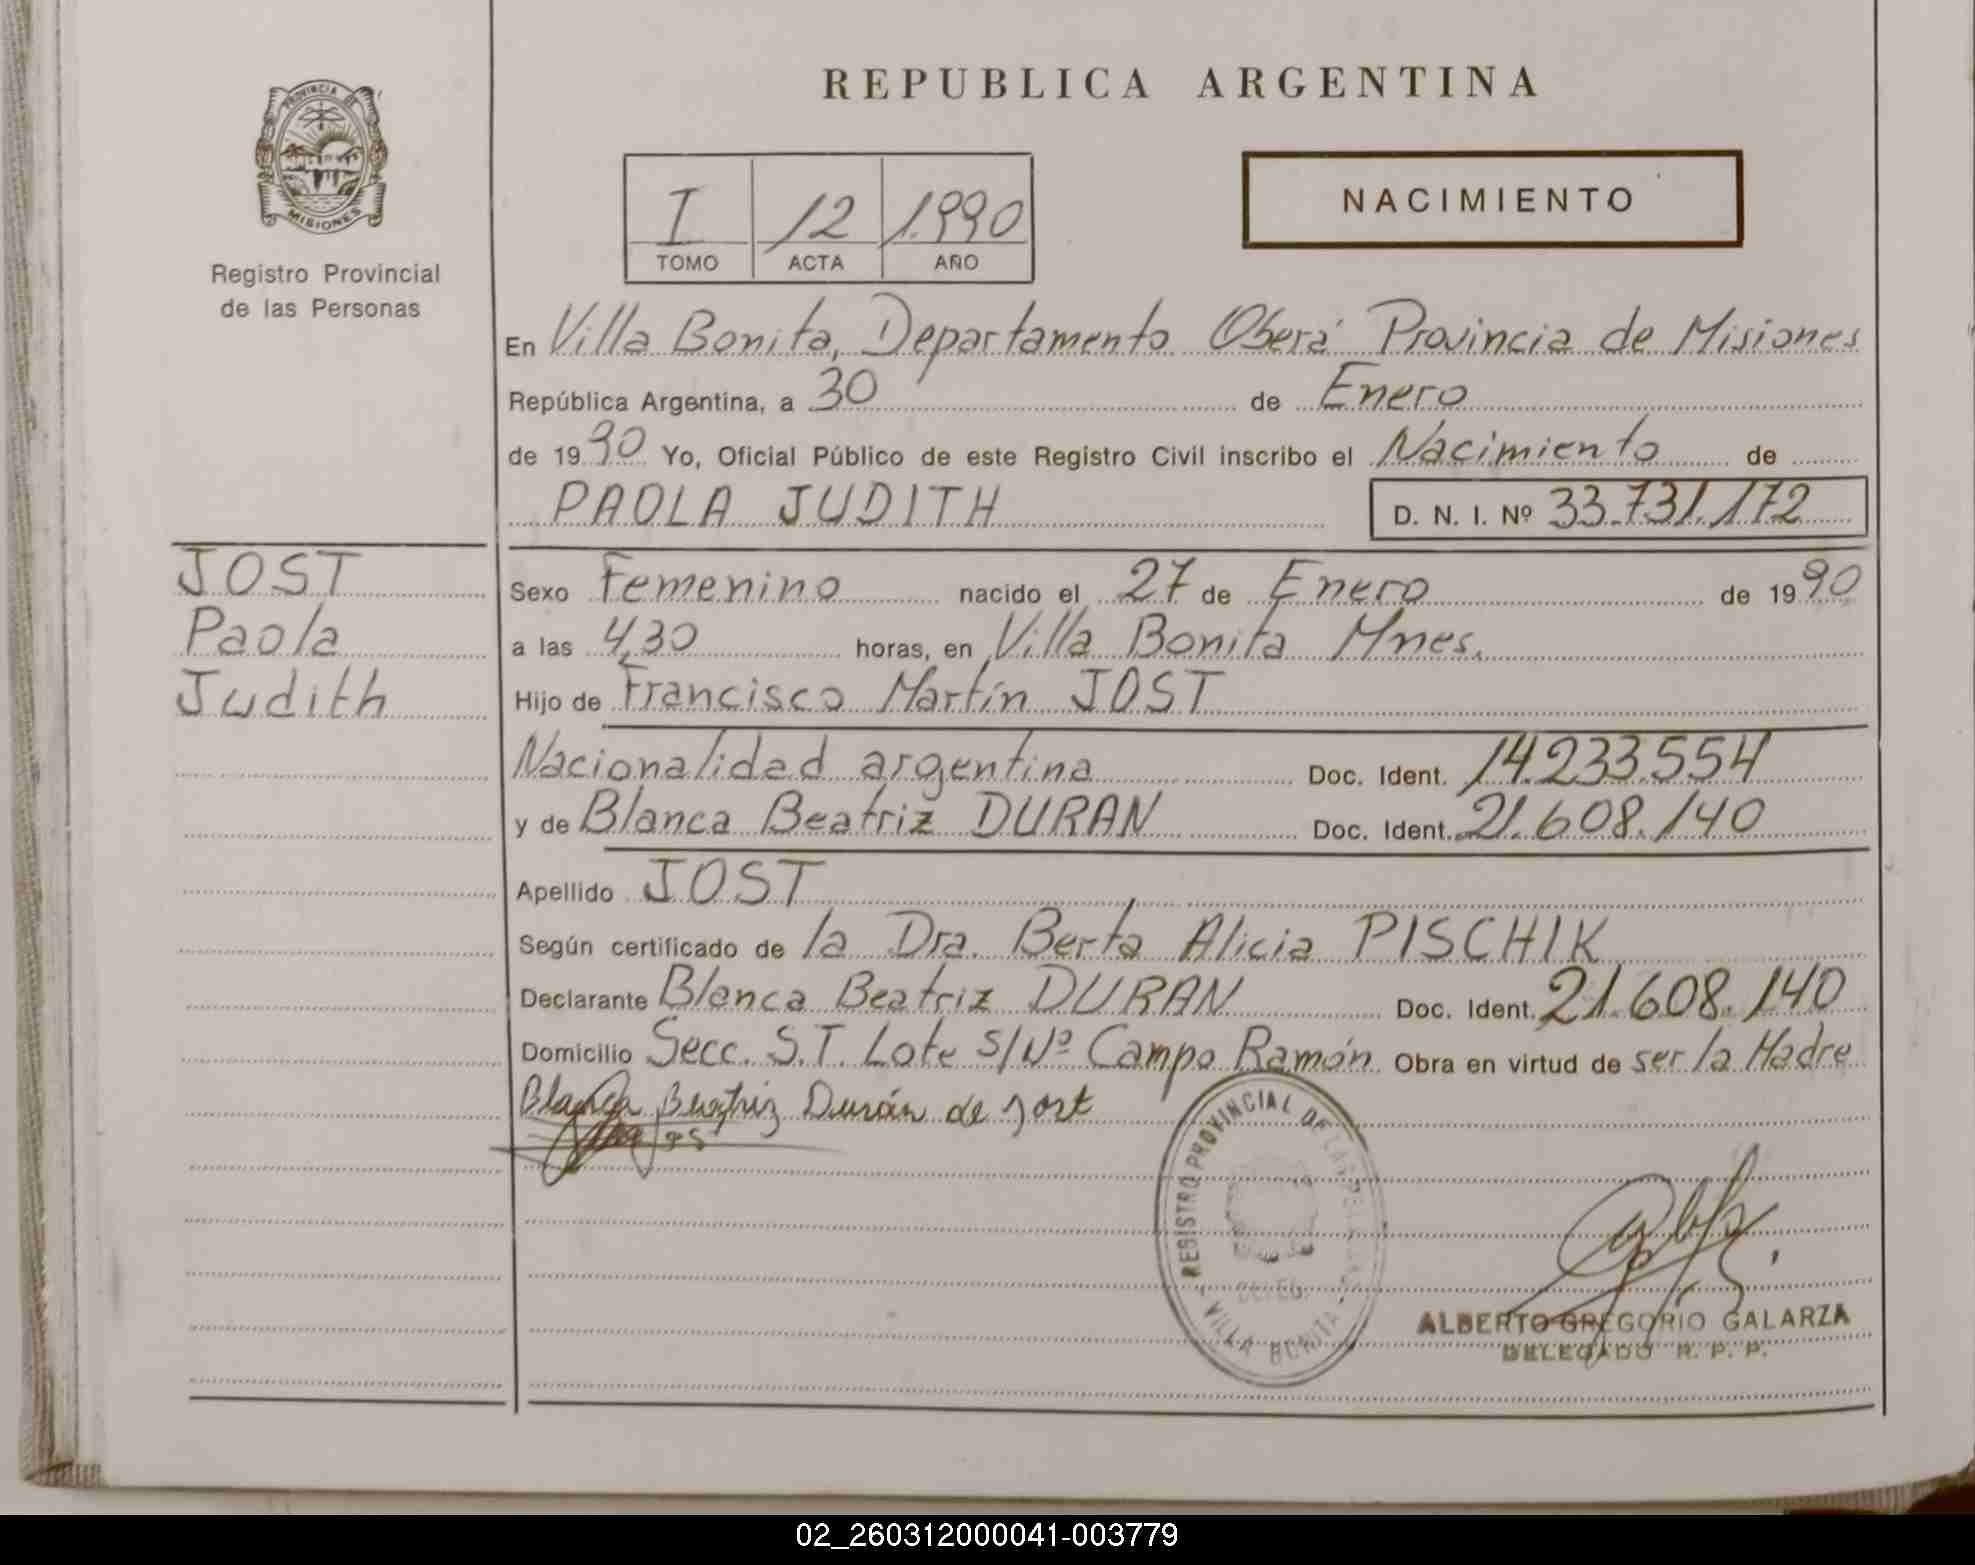 REPUBLICA ARGENTINA
PROVINCIA DE
MISIONES
Registro Provincial
de las Personas
I 12 1990
TOMO ACTA AÑO
NACIMIENTO
En Villa Bonita, Departamento Oberá Provincia de Misiones
República Argentina, a 30 de Enero
de 1990 Yo, Oficial Público de este Registro Civil inscribo el Nacimiento de
PAOLA JUDITH D. N. I. Nº 33.731.172
JOST
Paola
Judith
Sexo Femenino nacido el 27 de Enero de 1990
a las 4,30 horas, en Villa Bonita Mnes.
Hijo de Francisco Martín JOST
Nacionalidad argentina Doc. Ident. 14.233.554
y de Blanca Beatriz DURAN Doc. Ident. 21.608.140
Apellido JOST
Según certificado de la Dra. Berta Alicia PISCHIK
Declarante Blanca Beatriz DURAN Doc. Ident. 21.608.140
Domicilio Secc. S.T. Lote S/Nº Campo Ramón Obra en virtud de ser la Madre
Blanca Beatriz Durán de Jost
REGISTRO PROVINCIAL DE LAS
VILLA BONITA
ALBERTO GREGORIO GALARZA
DELEGADO R. P. P.
02_260312000041-003779